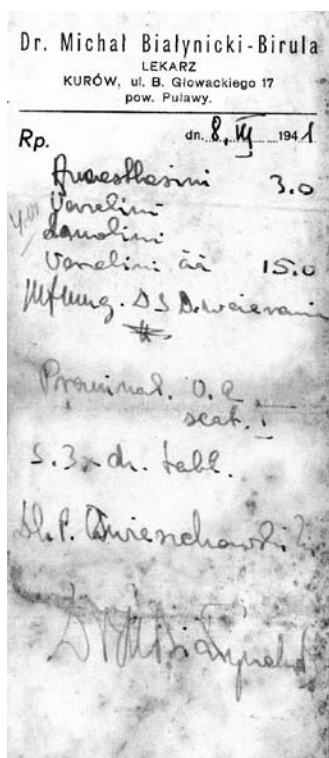 Dr. Michał Białynicki-Birula
LEKARZ
KURÓW, ul. B. Głowackiego 17
pow. Puławy.
Rp. dn. 8. VII 1941
Anaesthesini 3.0
Vaselini
Lanolini
Vaselini āā 15.0
Mf. ung. D.S. Do wcierania
#
Prominal. 0.2
scat. I
S. 3 x dn. tabl.
Dl. P.
Dr M Białynicki